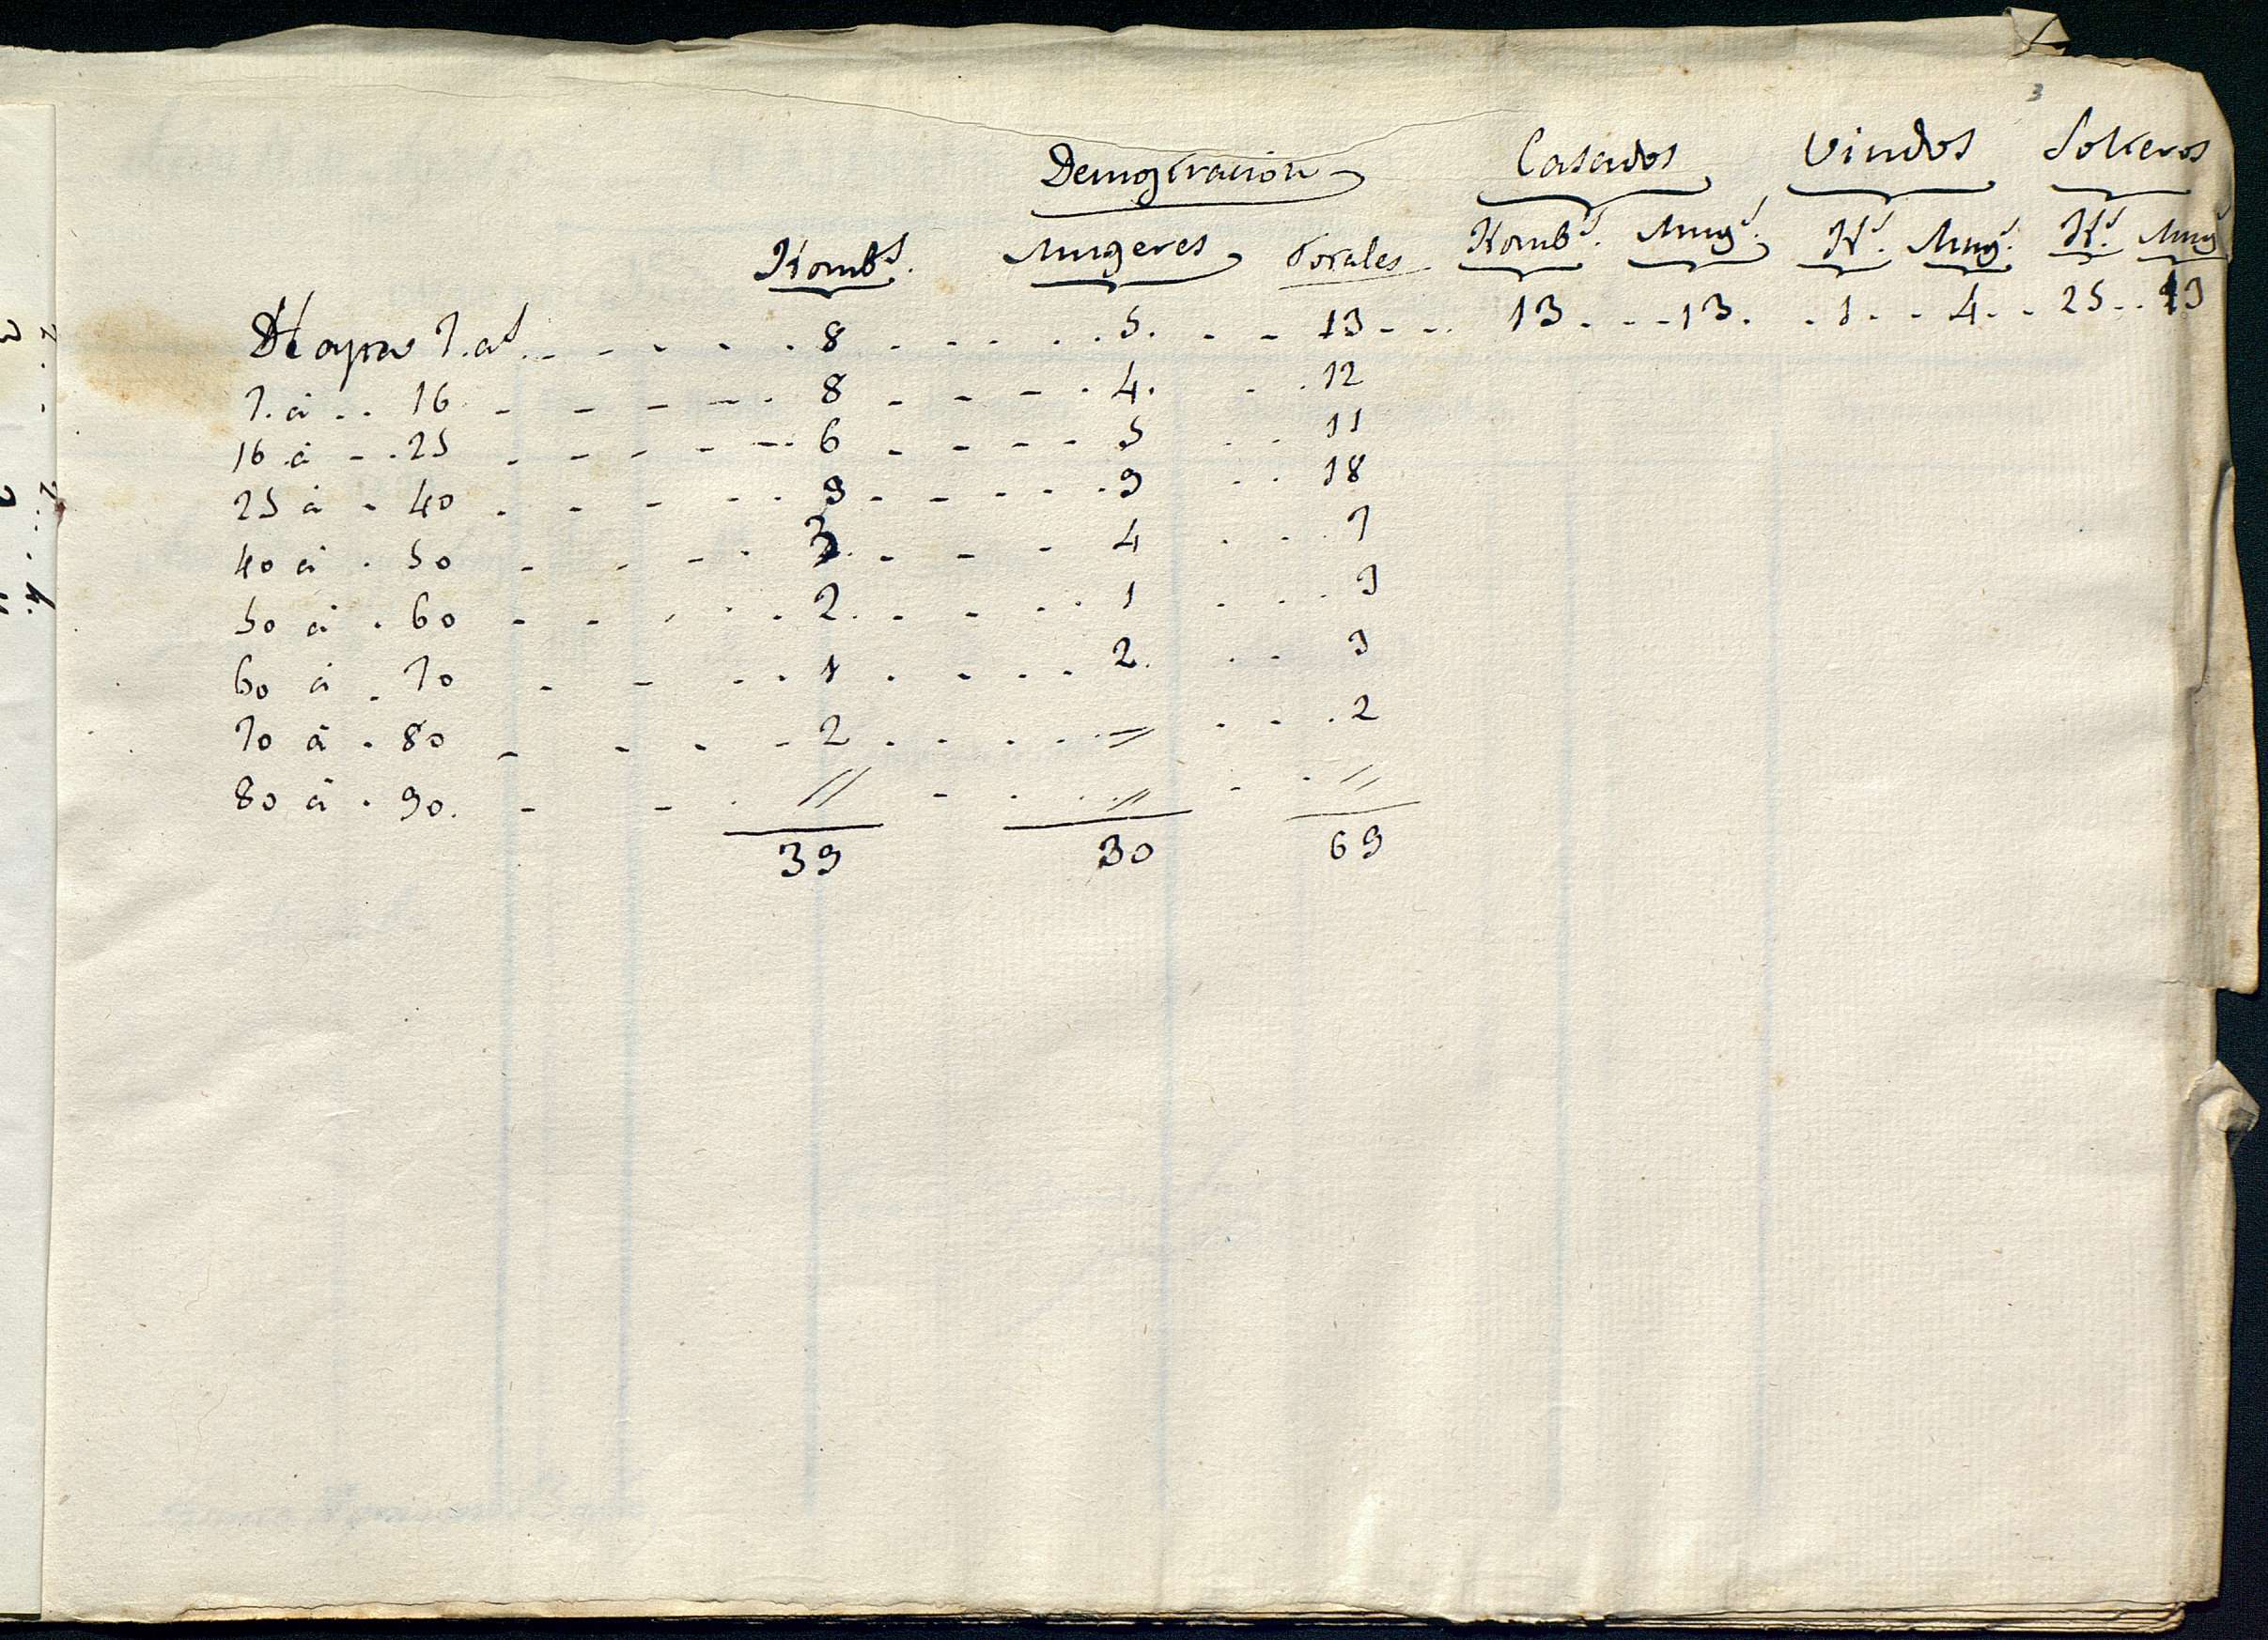 3
Demostracion Casados Viudos Solteros
Homb.s Mugeres Totales Homb.s Mug.s H.s Mug.s H.s Mug.s
7. a.s 8 5. 13 13. 13. 1. 4. 25 13
7. á 16 8 4. 12
16 á 25 6 5 11
25 á 40 9 9 18
40 á 50 3 4 7
50 á 60 2 1 3
60 á 70 1 2. 3
70 á 80 2 " 2
80 á 90. " " "
39 30 69